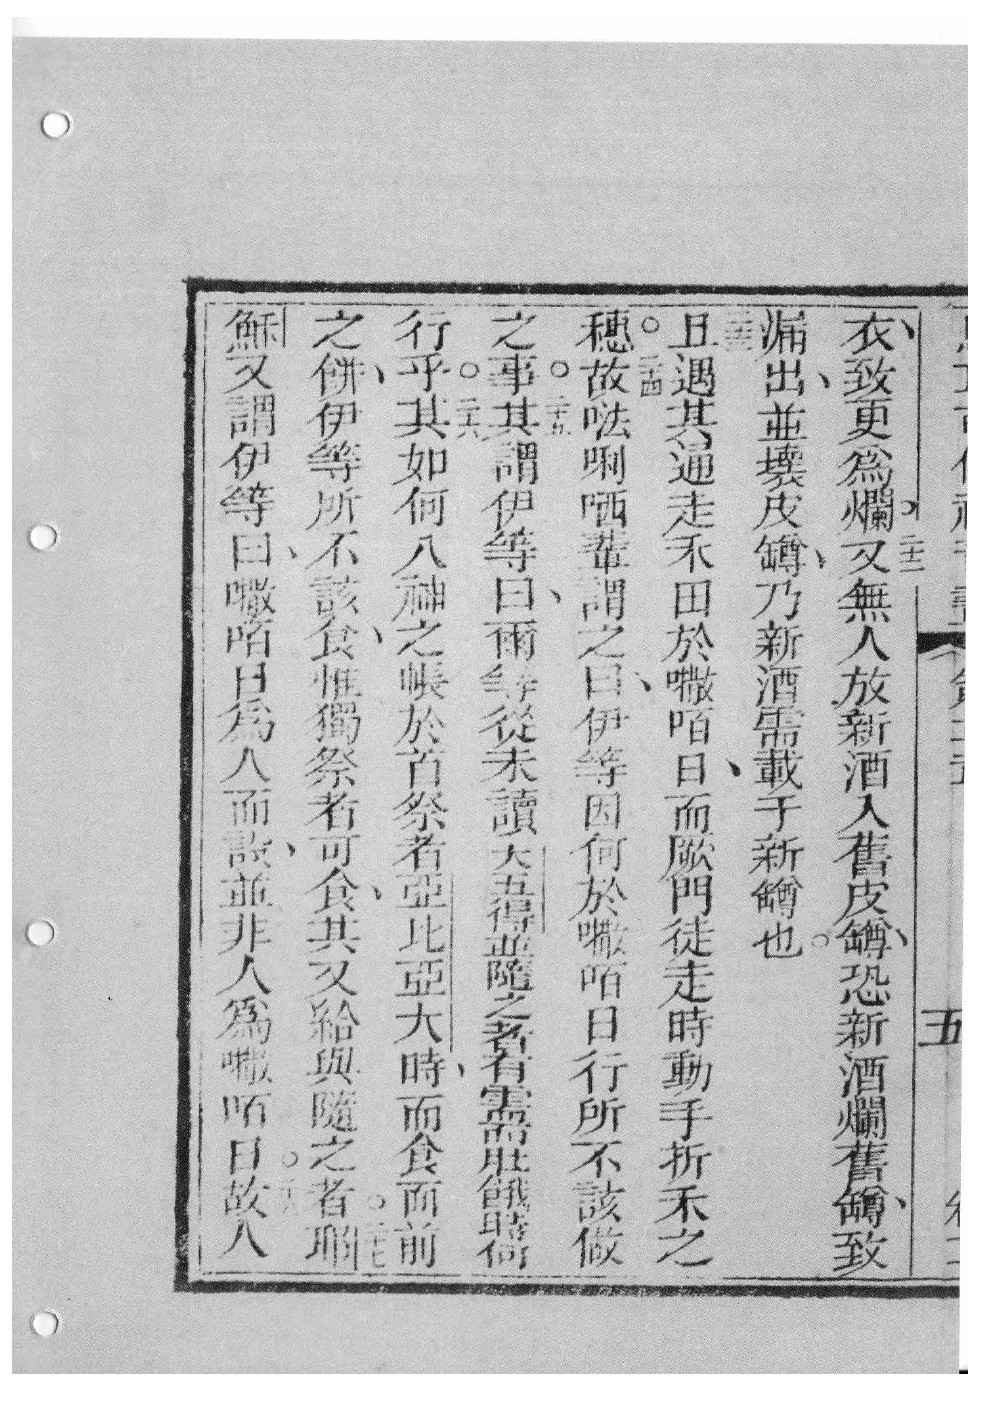 五
衣、致更為爛、二十二又無人放新酒入舊皮罇、恐新酒爛舊罇、致
漏出、並壞皮罇、乃新酒需載于新罇也。
二十三且遇其通走禾田於嚫咟日、而厥門徒走時動手折禾之
穗。二十四故㕸唎哂輩謂之曰、伊等因何於嚫咟日行所不該做
之事。二十五其謂伊等曰、爾等從未讀大五得並隨之者有需而肚餓時何
行乎。二十六其如何入神之帳於首祭者亞比亞大時、而食而前
之餅、伊等所不該食、惟獨祭者可食、其又給與隨之者。二十七耶
穌又謂伊等曰、嚫咟日為人而設、並非人為嚫咟日。二十八故人